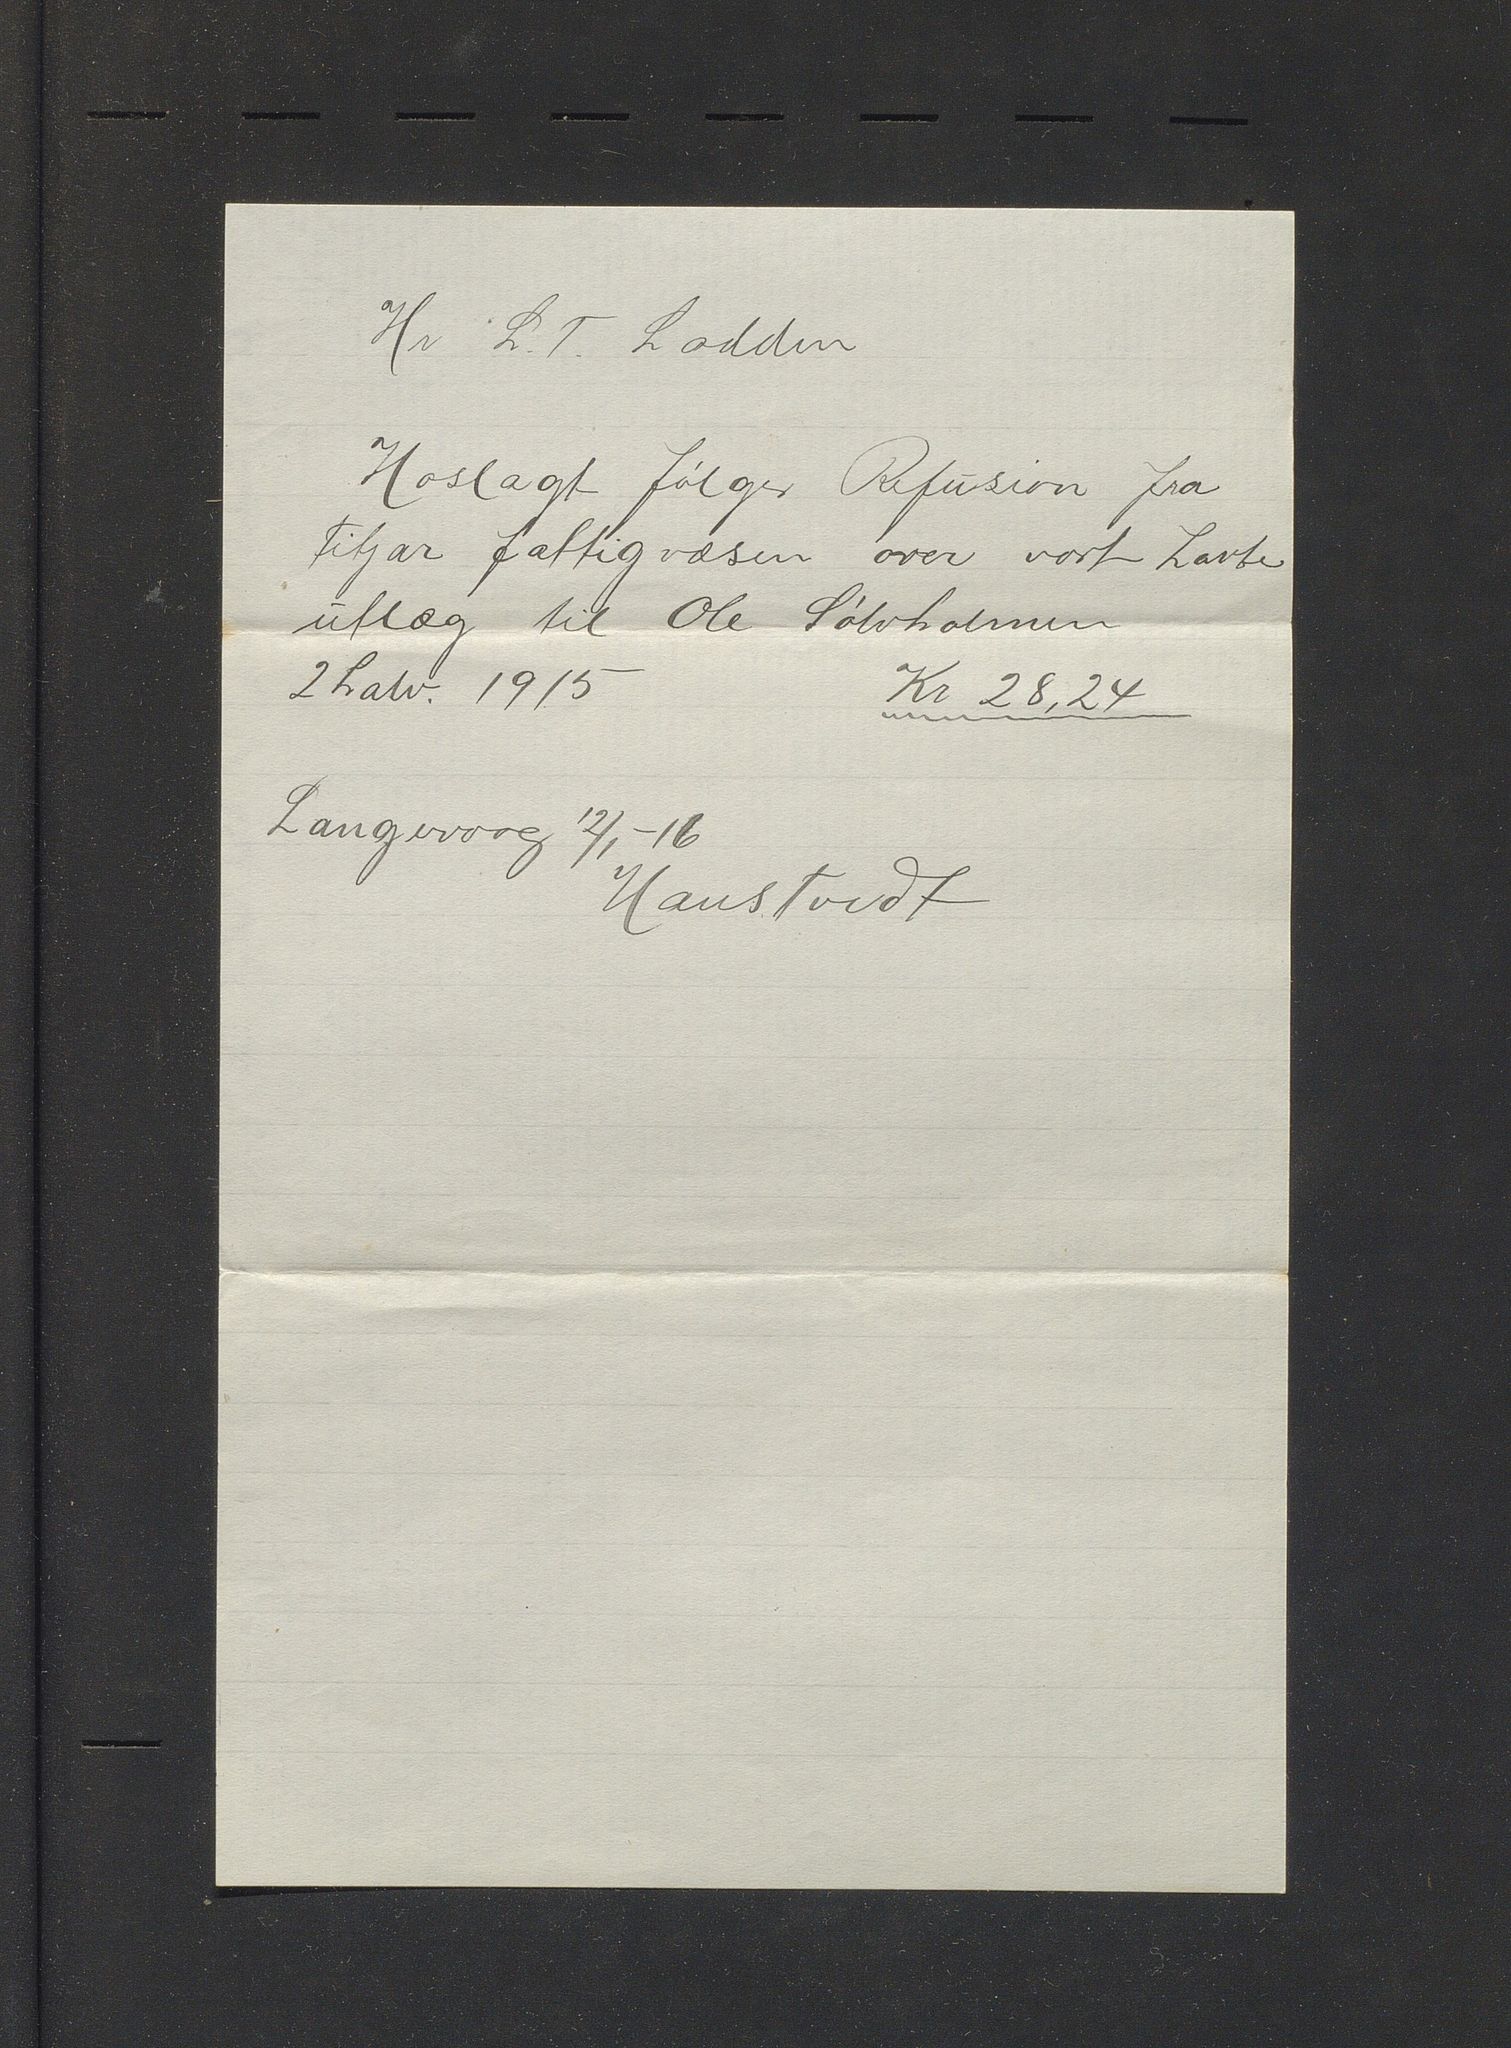 Hr L. T. Lodden
Hoslagt følger Refusion fra
Fitjar fattigvæsen over vort havte
utlæg til Ole Sølvholmen
2 halv. 1915 Kr 28,24
Langevaag 12/1 - 16
Haustvedt